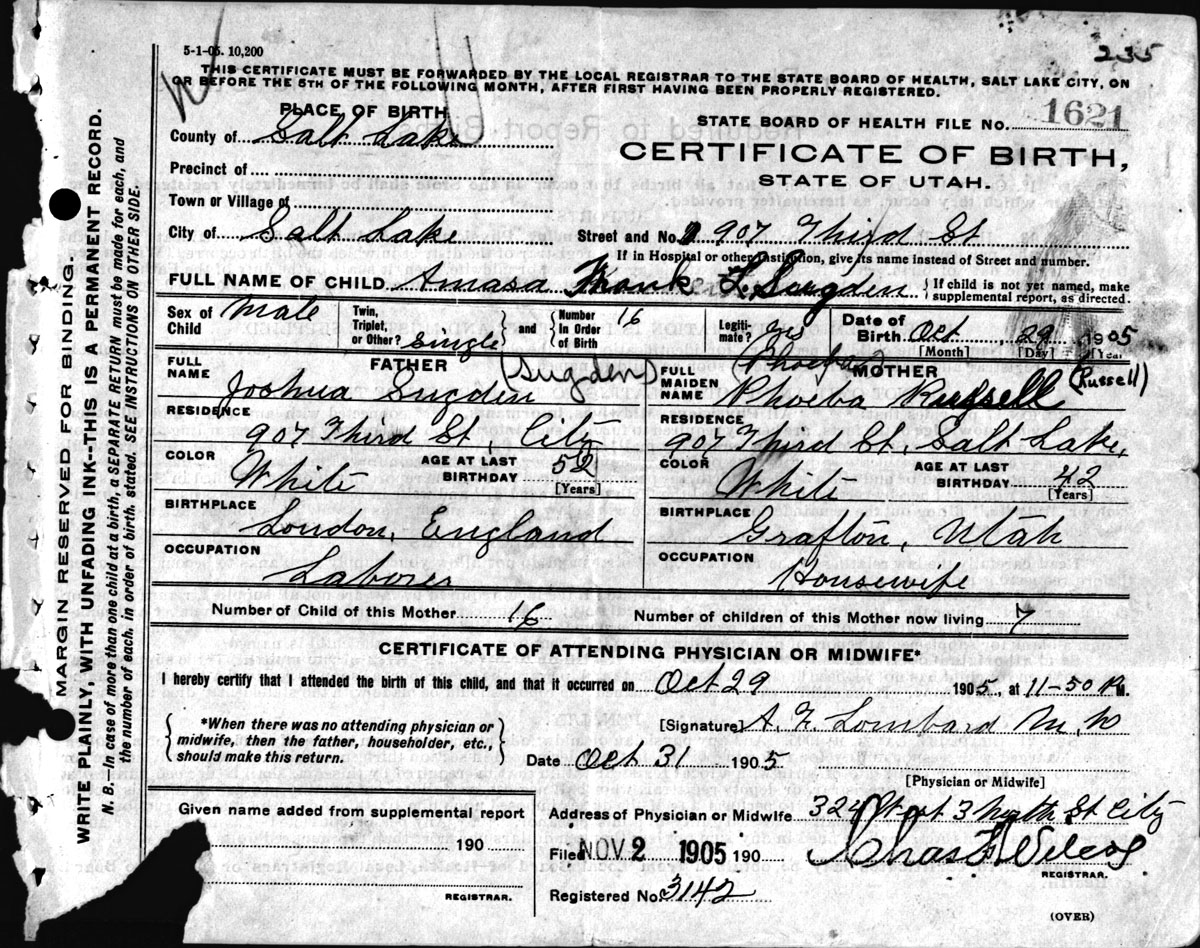 5-1-05. 10,200
235
THIS CERTIFICATE MUST BE FORWARDED BY THE LOCAL REGISTRAR TO THE STATE BOARD OF HEALTH, SALT LAKE CITY, ON
OR BEFORE THE 5TH OF THE FOLLOWING MONTH, AFTER FIRST HAVING BEEN PROPERLY REGISTERED.
PLACE OF BIRTH
STATE BOARD OF HEALTH FILE NO. 1621
County of Salt Lake
CERTIFICATE OF BIRTH,
Precinct of
STATE OF UTAH.
Town or Village of
City of Salt Lake
Street and No. 907 Third St
If in Hospital or other Institution, give its name instead of Street and number.
FULL NAME OF CHILD Amasa Frank L. Sugden { If child is not yet named, make supplemental report, as directed.
Sex of Child Male Twin, Triplet, or Other? Single and Number in Order of Birth 16 Legitimate? yes Date of Birth Oct 29 1905
[Month] [Day] [Year]
FULL NAME FATHER (Sugden)
Joshua Sugden
RESIDENCE
907 Third St, City
COLOR White AGE AT LAST BIRTHDAY 52
[Years]
BIRTHPLACE
London, England
OCCUPATION
Laborer
FULL MAIDEN NAME MOTHER (Russell)
Phoeba Russell
RESIDENCE
907 Third St, Salt Lake,
COLOR White AGE AT LAST BIRTHDAY 42
[Years]
BIRTHPLACE
Grafton, Utah
OCCUPATION
Housewife
Number of Child of this Mother 16 Number of children of this Mother now living 7
CERTIFICATE OF ATTENDING PHYSICIAN OR MIDWIFE*
I hereby certify that I attended the birth of this child, and that it occurred on Oct 29 1905, at 11-50 P.M.
{ *When there was no attending physician or
midwife, then the father, householder, etc.,
should make this return. }
[Signature] A. F. Lombard M.D
Date Oct 31 1905
[Physician or Midwife]
Given name added from supplemental report
190
REGISTRAR.
Address of Physician or Midwife 324 West 3 North St City
Filed NOV 2 1905 190 Chas F Wilcox
REGISTRAR.
Registered No. 3142
(OVER)
MARGIN RESERVED FOR BINDING.
WRITE PLAINLY, WITH UNFADING INK--THIS IS A PERMANENT RECORD.
N. B.—In case of more than one child at a birth, a SEPARATE RETURN must be made for each, and
the number of each, in order of birth, stated. SEE INSTRUCTIONS ON OTHER SIDE.